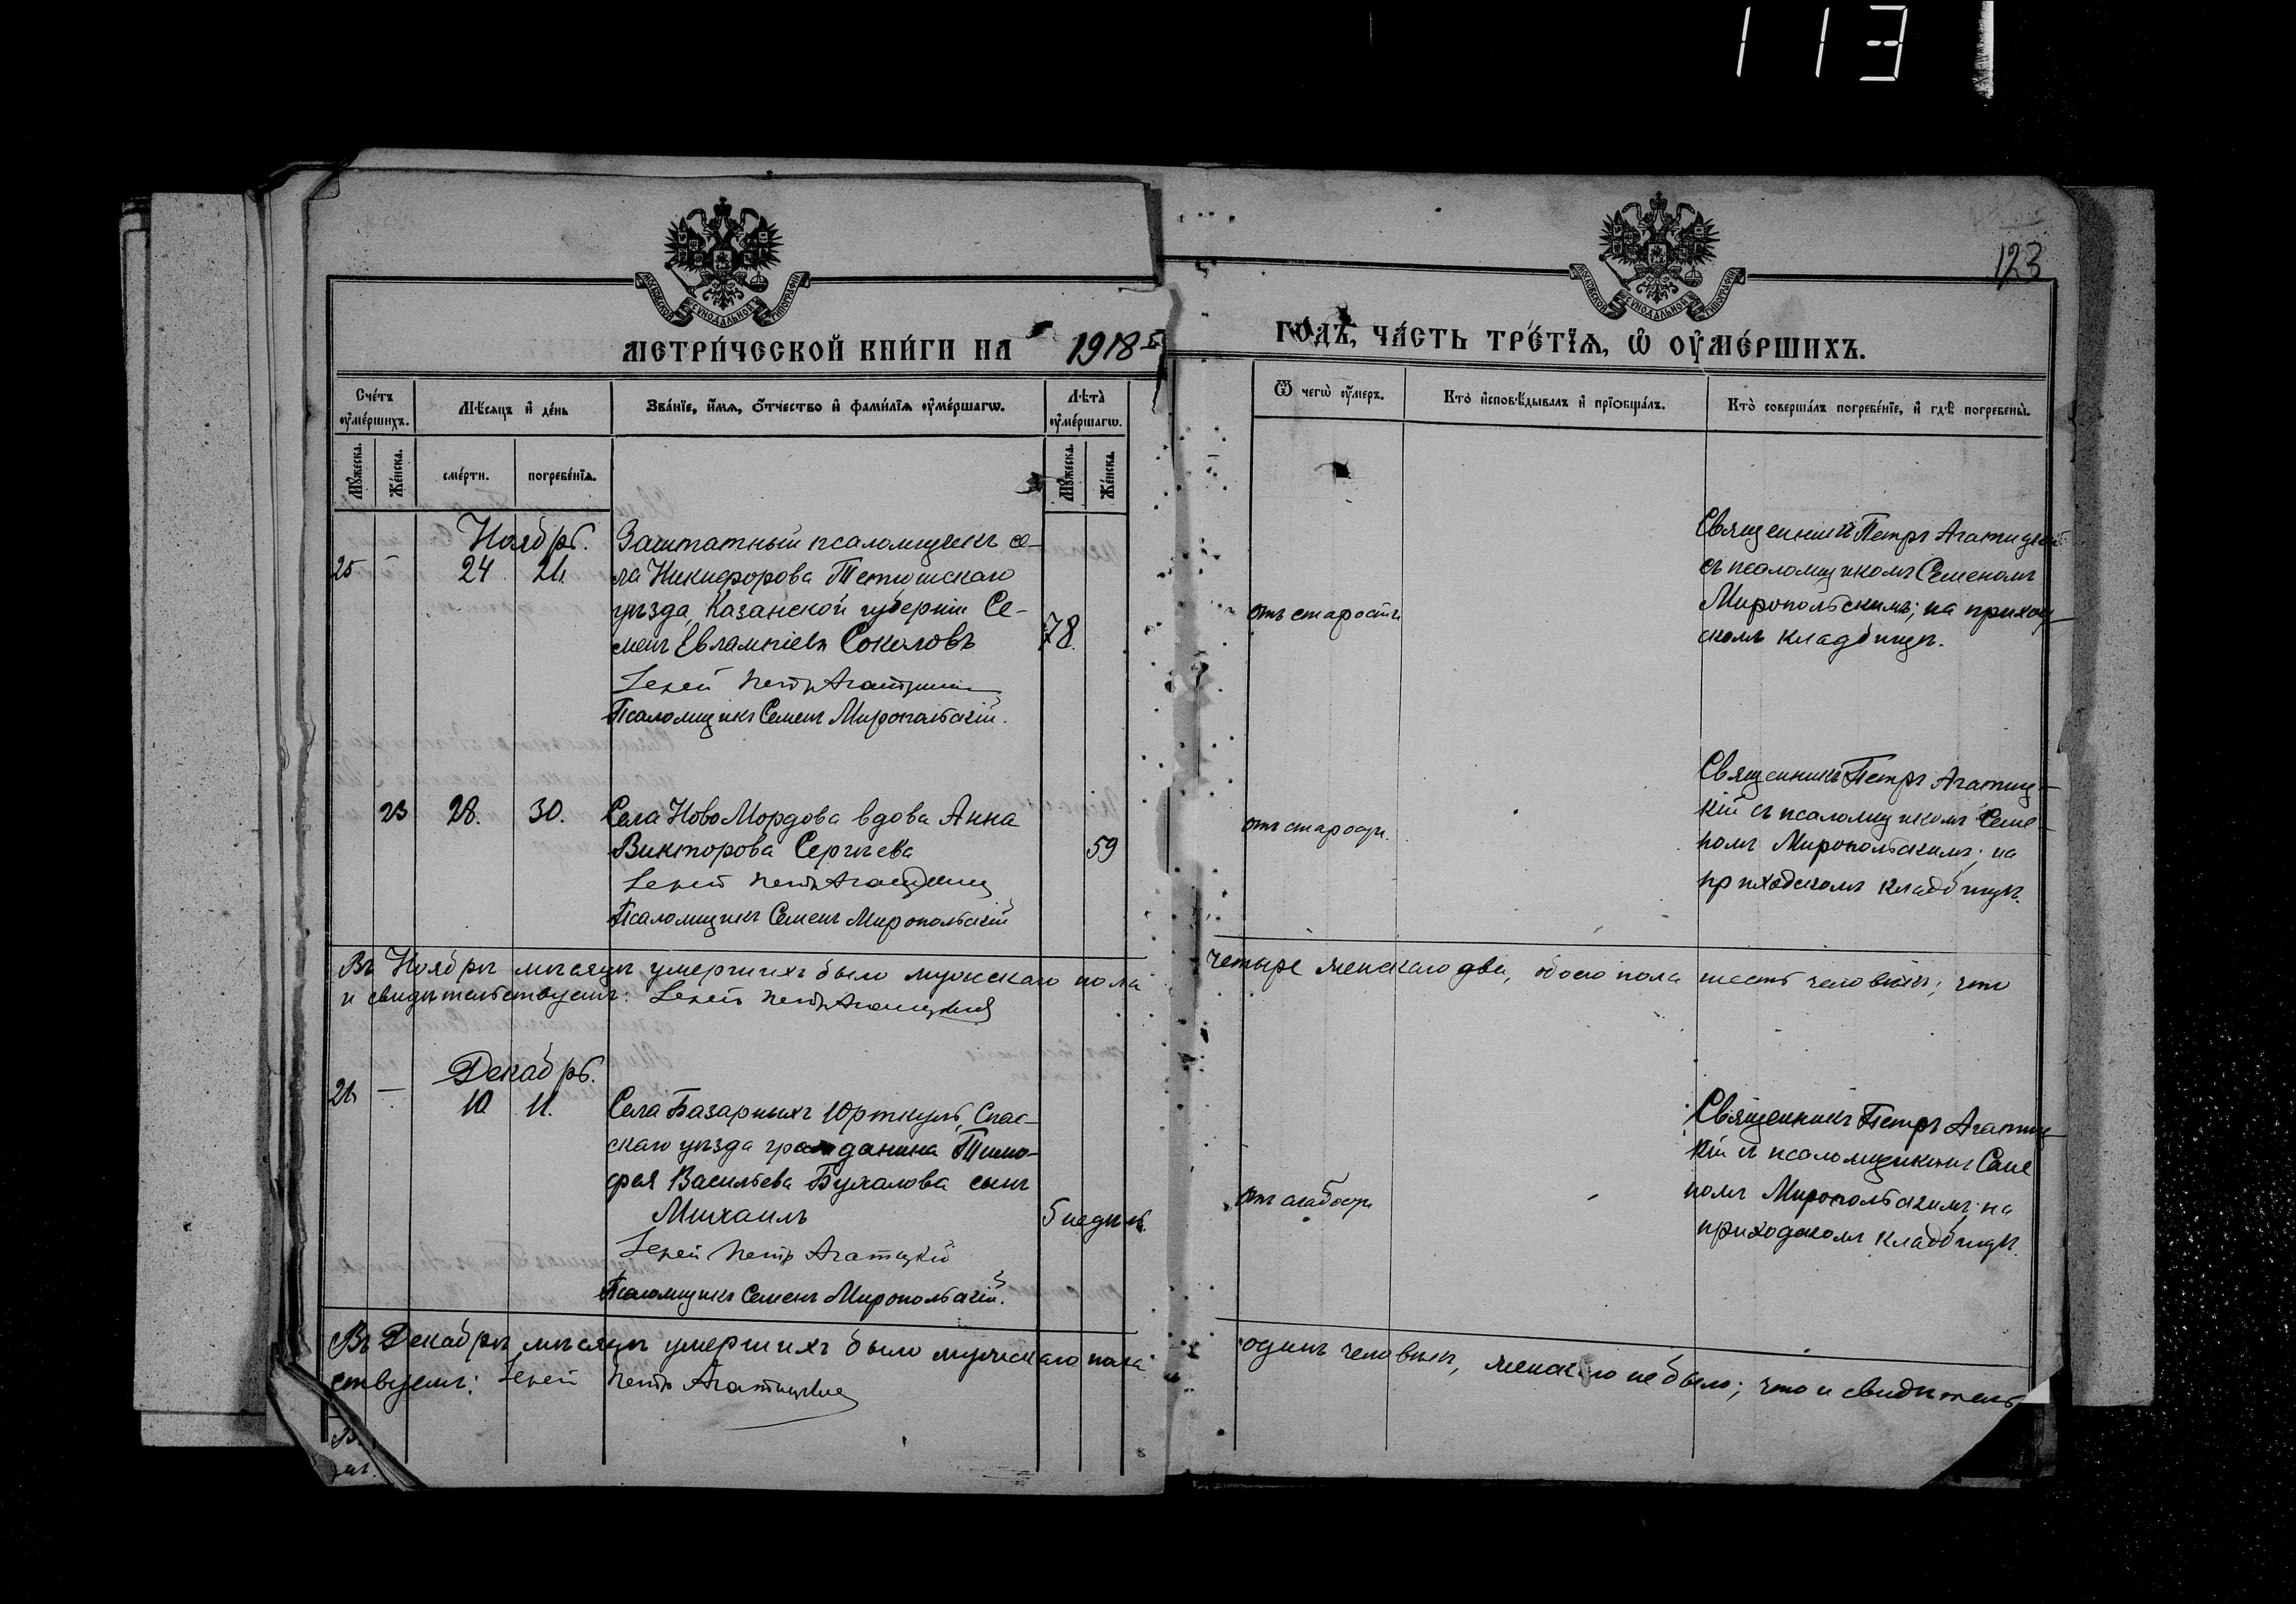 1131
123
МОСКОВСКОЙ СѴНОДАЛЬНОЙ ТИПОГРАФІИ
МОСКОВСКОЙ СѴНОДАЛЬНОЙ ТИПОГРАФІИ
МЕТРИ́ЧЕСКОЙ КНИ́ГИ НА 1918 й
ГО́ДЪ, ЧА́СТЬ ТРЕ́ТЇѦ, Ѡ ОУ҆МЕ́РШИХЪ.
Сче́тъ оу҆ме́ршихъ.
Мѣ́сѧцъ и҆ де́нь
Зва́нїе, и҆́мѧ, ѻ҆́тчество и҆ фами́лїѧ оу҆ме́ршагѡ.
Лѣ́та оу҆ме́ршагѡ.
Ѿ чегѡ̀ оу҆́меръ.
Кто̀ и҆сповѣ́дывалъ и҆ прїѡбща́лъ.
Кто̀ соверша́лъ погребе́нїе, и҆ гдѣ̀ погребены̀.
Мꙋ́жеска. Же́нска. сме́рти. погребе́нїѧ. Мꙋ́жеска. Же́нска.
Ноябрь.
25 – 24. 26.
Заштатный псаломщикъ се-
ла Никифорова Тетюшскаго
уѣзда, Казанской губерніи Се-
менъ Евлампіевъ Соколовъ
78.
Іерей Петръ Агатицкій
Псаломщикъ Семенъ Миропольскій.
отъ старости
Священникъ Петръ Агатицкій
съ псаломщикомъ Семеномъ
Миропольскимъ; на приход-
скомъ кладбищѣ.
23 28. 30.
Села НовоМордова вдова Анна
Викторова Сергѣева
59
Іерей Петръ Агатицкій
Псаломщикъ Семенъ Миропольскій
отъ старости.
Священникъ Петръ Агатиц-
кій съ псаломщикомъ Семе-
номъ Миропольскимъ; на
приходскомъ кладбищѣ.
Въ Ноябрѣ мѣсяцѣ умершихъ было мужскаго пола четыре женскаго два, обоего пола шесть человѣкъ; что
и свидѣтельствуемъ: Іерей Петръ Агатицкій
Декабрь.
26 – 10 11.
Села Базарныхъ Юрткуль, Спас-
скаго уѣзда гражданина Тимо-
фея Васильева Бухалова сынъ
Михаилъ
5 недѣль.
Іерей Петръ Агатицкій
Псаломщикъ Семенъ Миропольскій.
отъ слабости
Священникъ Петръ Агатиц-
кій съ псаломщикомъ Семе
номъ Миропольскимъ; на
приходскомъ кладбищѣ.
Въ Декабрѣ мѣсяцѣ умершихъ было мужскаго пола одинъ человѣкъ, женскаго не было; что и свидѣтель
ствуемъ: Іерей Петръ Агатицкій